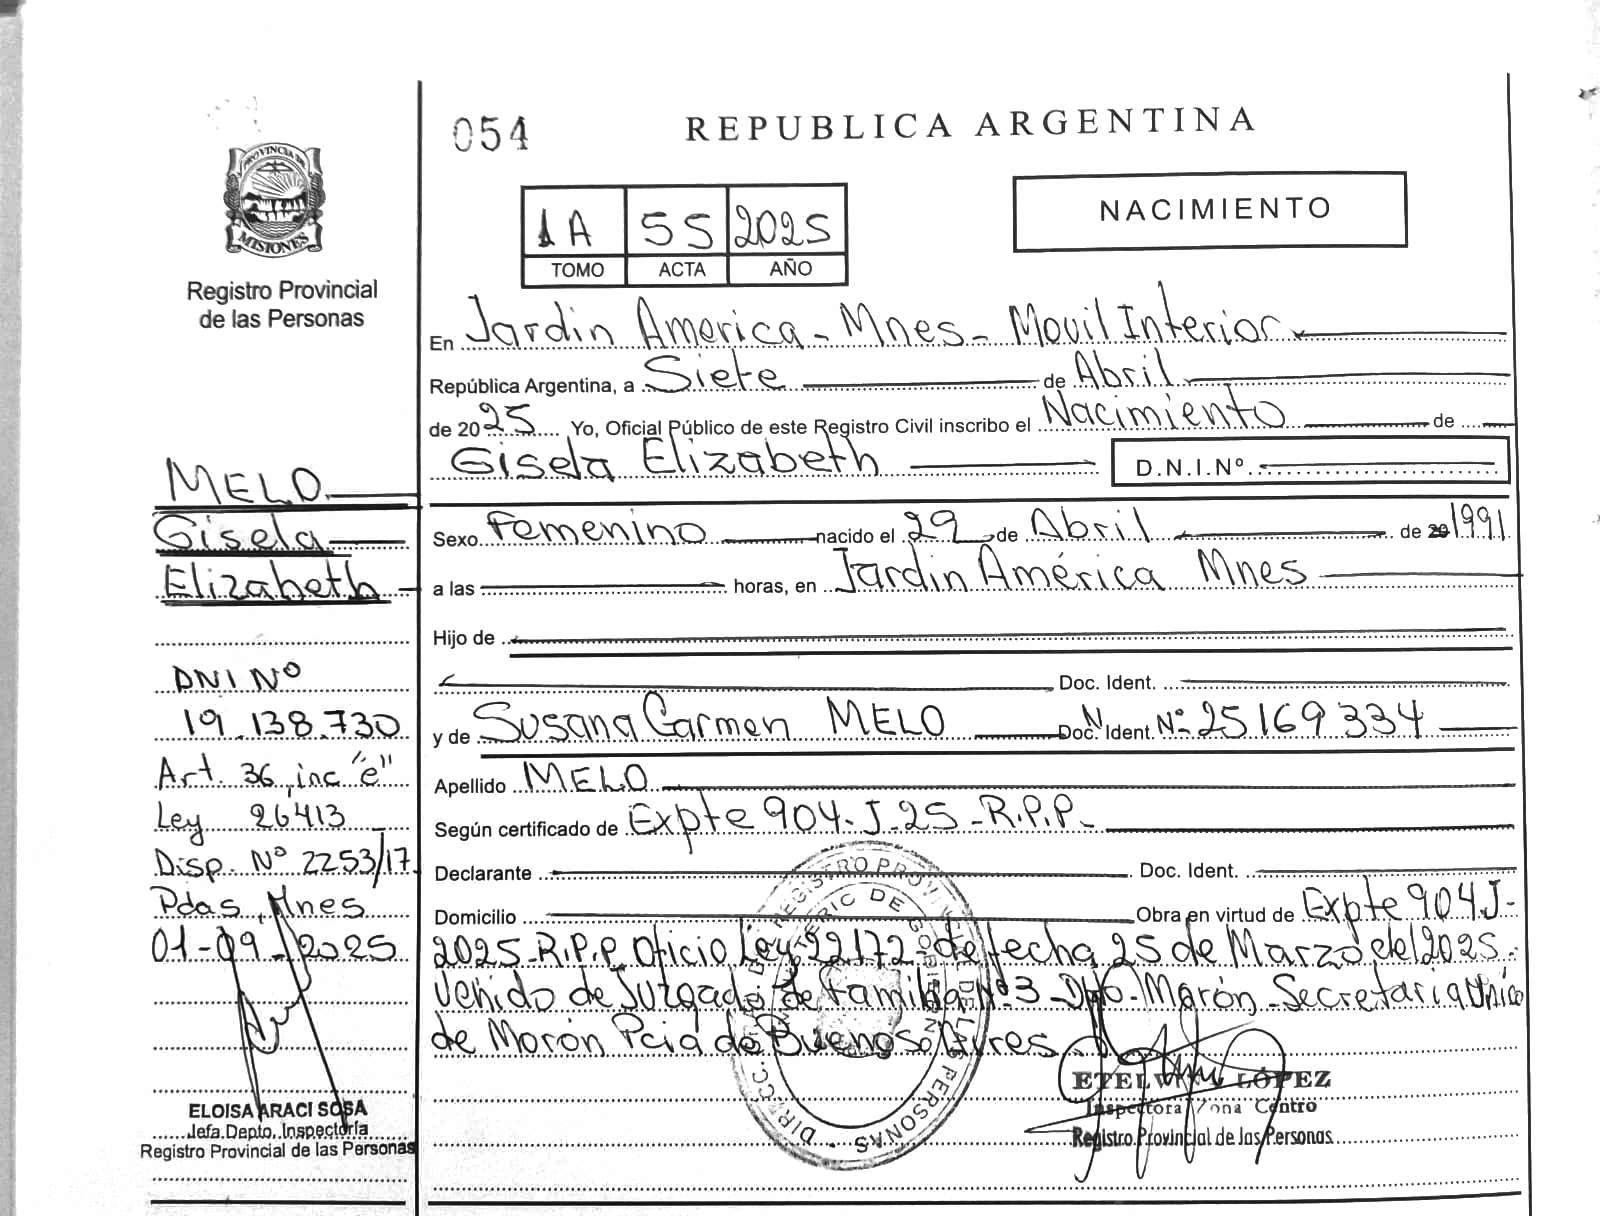 054
REPUBLICA ARGENTINA
PROVINCIA DE
MISIONES
Registro Provincial
de las Personas
1A 55 2025
TOMO ACTA AÑO
NACIMIENTO
En Jardin America - Mnes - Movil Interior
República Argentina, a Siete de Abril
de 2025 Yo, Oficial Público de este Registro Civil inscribo el Nacimiento de
Gisela Elizabeth D.N.I.Nº
Sexo Femenino nacido el 29 de Abril de 20 1991
a las horas, en Jardin América Mnes
Hijo de
Doc. Ident.
y de Susana Carmen MELO Doc. Ident. N Nº 25169334
Apellido MELO
Según certificado de Expte 904-J-25-R.P.P-
Declarante Doc. Ident.
Domicilio Obra en virtud de Expte 904J-
2025-R.P.P Oficio Ley 22172 de fecha 25 de Marzo del 2025.
Venido de Juzgado de Familia Nº3-Dpto-Morón-Secretaria Unica
de Morón Pcia de Buenos Aires.
ETELVINA LÓPEZ
Inspectora Zona Centro
Registro Provincial de las Personas
MELO
Gisela
Elizabeth
DNI Nº
19.138.730
Art. 36, inc "e"
Ley 26413
Disp. Nº 2253/17
Pdas, Mnes
01-09-2025
ELOISA ARACI SOSA
Jefa Depto. Inspectoría
Registro Provincial de las Personas